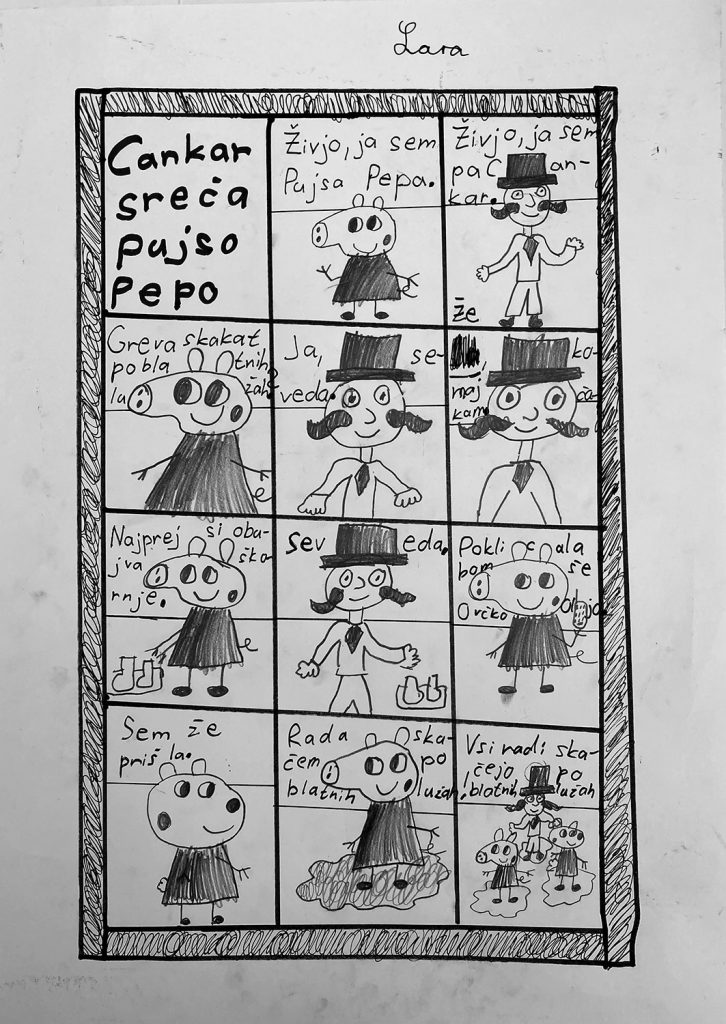 Lara
Cankar
sreča
pujso
Pepo
Živjo, ja sem
Pujsa Pepa.
Živjo, ja sem
pa Can-
kar.
Greva skakat
po bla tnih
lu žah
že
Ja, se-
veda.
ko-
maj ča-
kam.
Najprej si obu-
jva ško-
rnje.
Sev eda.
Pokli cala
bom še
Ovčko
Sem že
prišla.
Rada ska-
čem po
blatnih lužah!
Vsi radi ska-
čejo po
blatnih lužah!